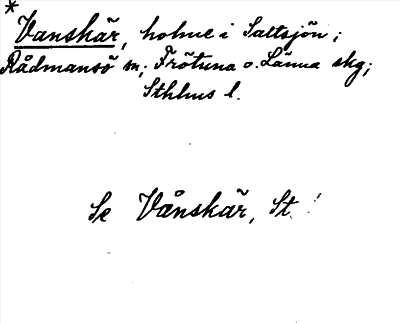 *
Vanskär, holme i Saltsjön;
Rådmansö sn; Frötuna o. Länna skg;
Sthlms l.
Se Vånskär, St.!